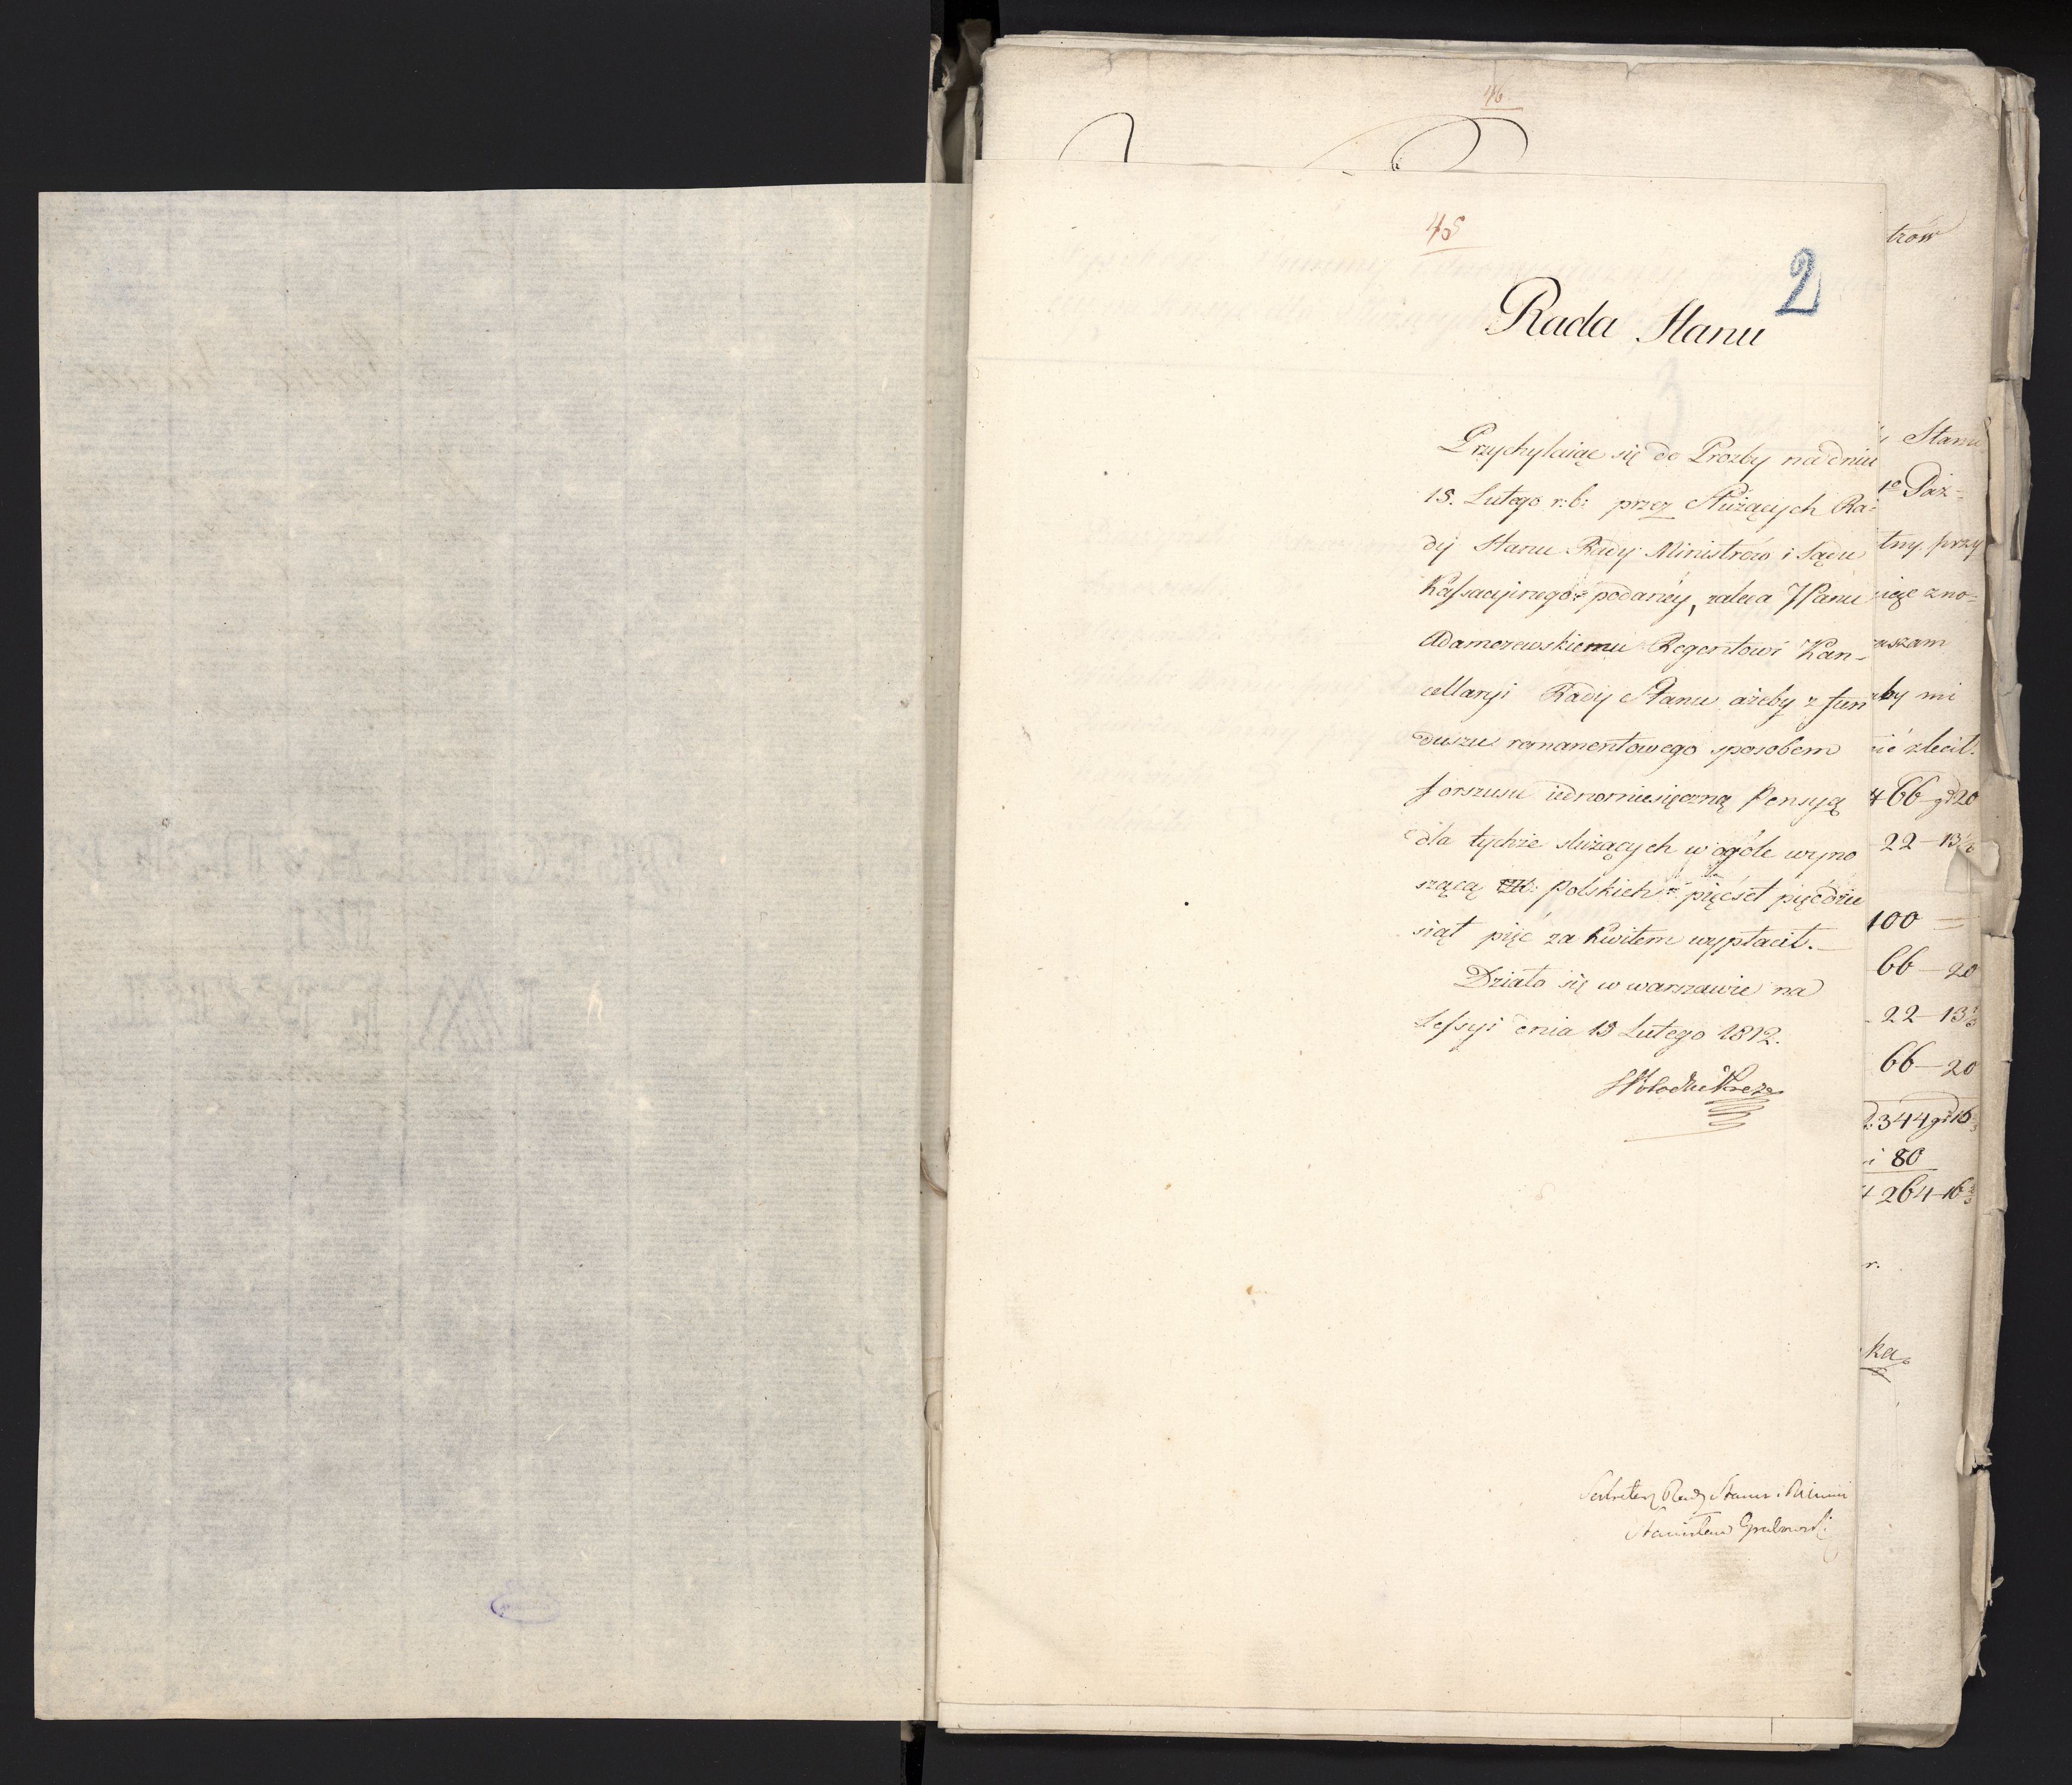 46.
45
2
Rada Stanu
Przychylaiąc się do Prozby na dniu
15. Lutego r: b: przez Służących Ra=
dy Stanu Rady Ministrów i Sądu
Kassacyinego podaney, zaleca JPanu
Adamczewskiemu Regentowi Kan-
cellaryi Rady Stanu ażeby z fun
duszu remanentowego sposobem
forszusu iednomiesięczną Pensyą
dla tychże służących w ogóle wyno
szącą Polskich pięćset pięćdzie
siąt pięć za kwitem wypłacił.—
Działo się w warszawie na
Sessyi dnia 19 Lutego 1812.
Sekretarz Rady Stanu i
Stanisław Grabowski
trów
Stanu
1º Paź-
tny przy
iące zno=
aszam
aby mi
ić zlecił.
66 gr 20
22 — 13⅓
100 =
66 — 20
22 — 13⅓
66 — 20
344 gr 16
80
264 — 16
r.
ka